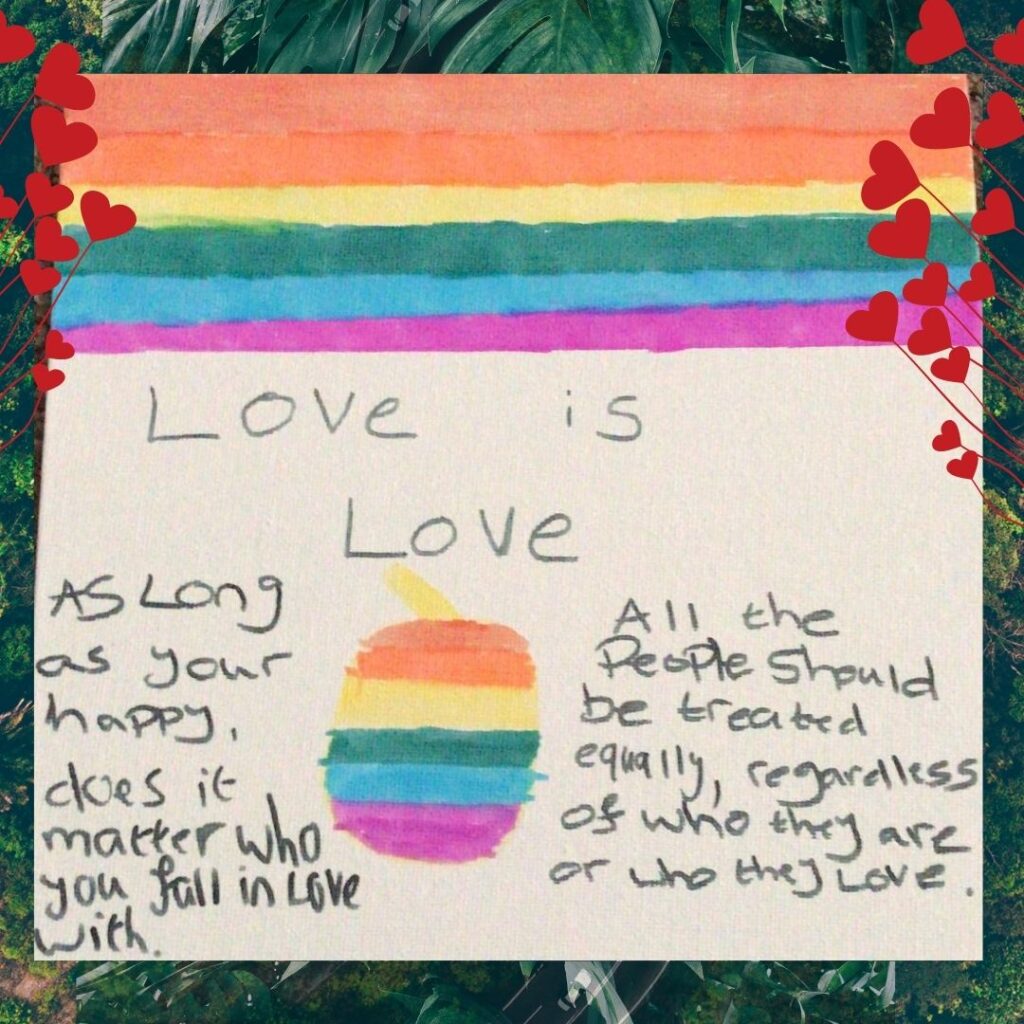 Love is
Love
As Long
as your
happy,
does it
matter who
you fall in Love
with.
All the
People Should
be treated
equally, regardless
of who they are
or who they Love.